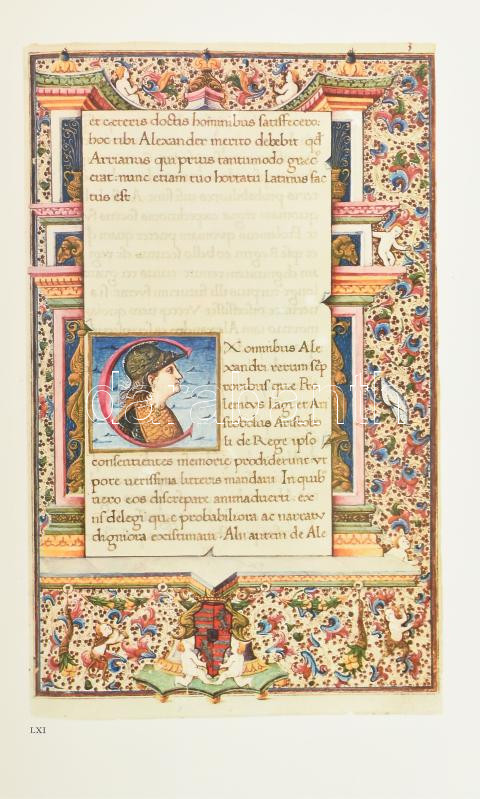 3
et ceteris doctis hominibus satisfecero:
hoc tibi Alexander merito debebit qđ
Arrianus qui prius tantumodo græc
erat: nunc etiam tuo hortatu latinus fac
tus est
EX omnibus Ale
xandri rerum scp
toribus quæ Pto
lemeus Lagi et Ari
stobolus Aristobo
li de Rege ipso
consentientes memorie prodiderunt vt
pote uerissima litteris mandaui In quibꝰ
uero eos discrepare animaduerti: ex
ijs delegi quæ probabiliora ac narratu
digniora existimaui. Alii autem de Ale
darabanth
LXI